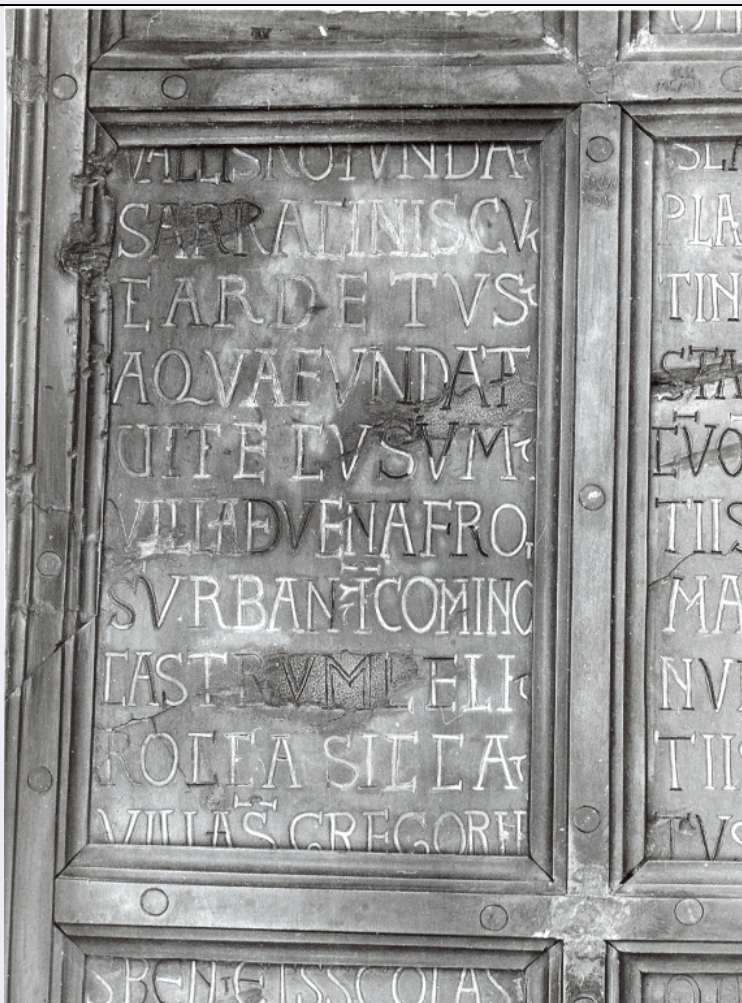 VALLISROTVNDA
SARRACINISCV
EARDETVS
AQVAFVNDAT
VITECVSVM
VILLADVENAFRO
SVRBANICOMINO
CASTRVMCELI
ROCCASICCA
VILLASGREGORII
SLA
PLA
TIN
STA
CVO
TIIS
MA
NVM
TIIS
TVS
SBENETSSCOLAS